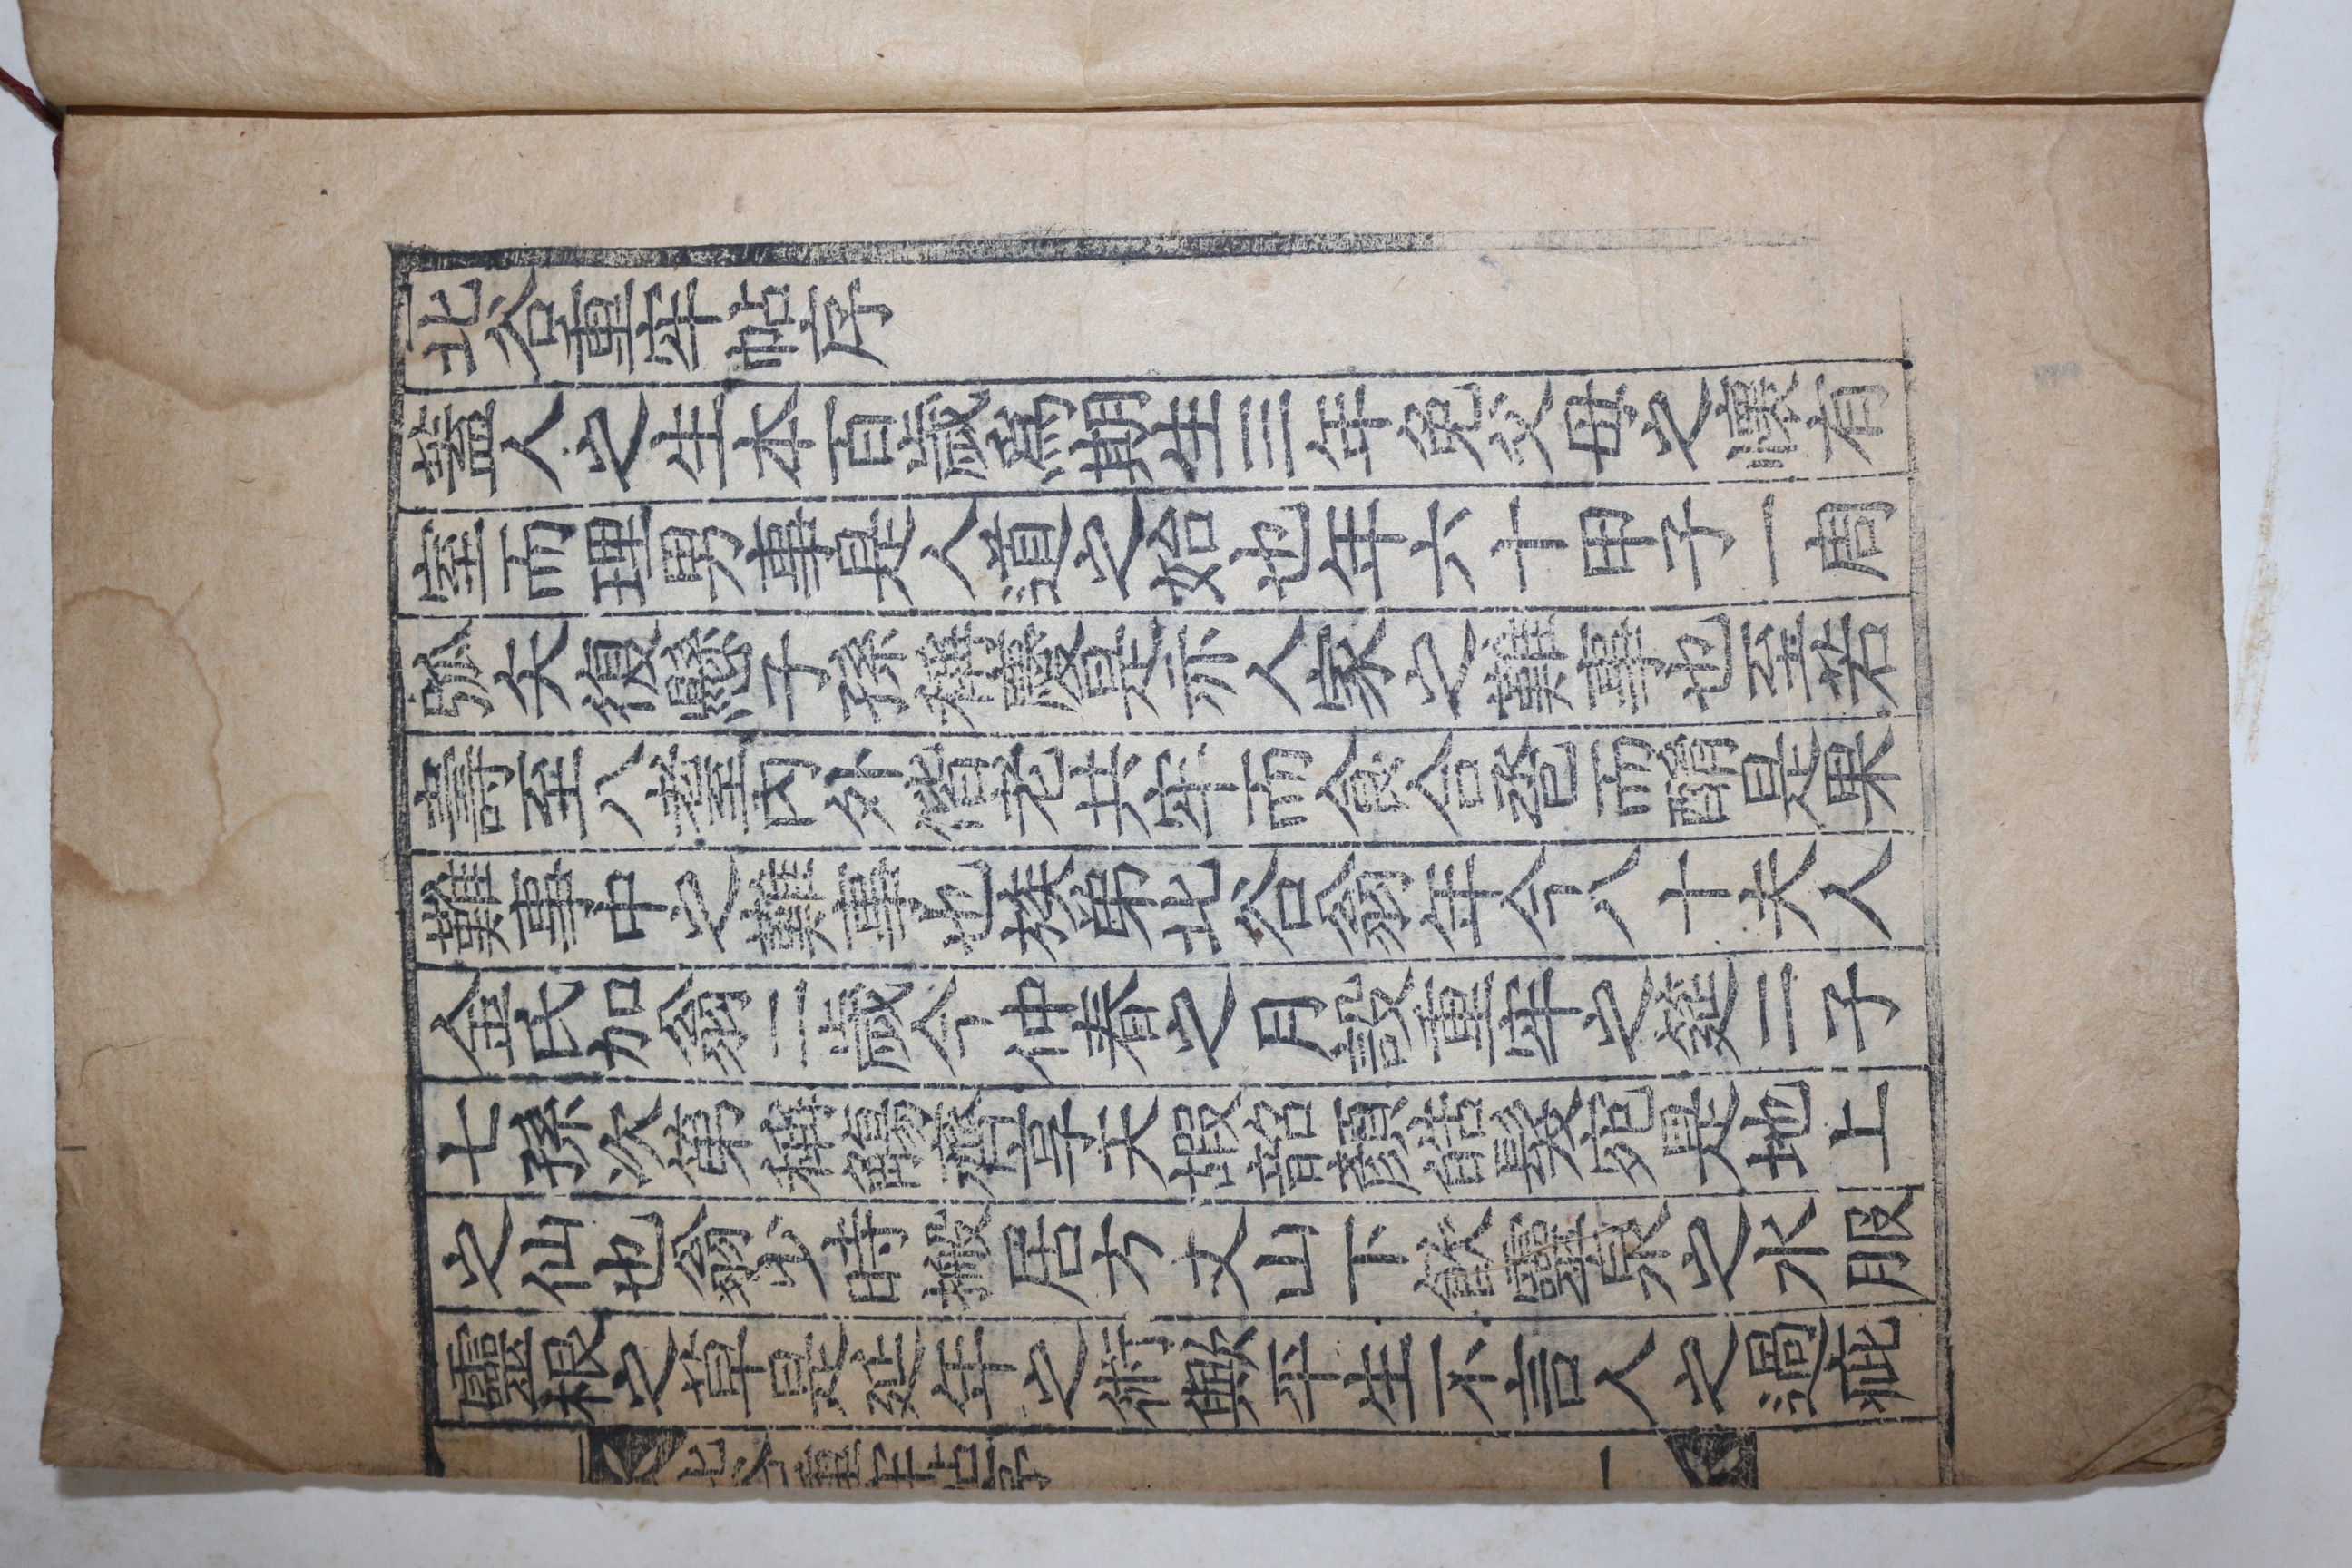 北谷重牢帖序
蓋人之生本百歲爲期生三年免父母之懷有
室而理男事是人道之始也年六十甲子一周
弧矢復懸子孫稱慶是亦人家之難事也至若
壽至八耋內外偕老共牢而食合巹而酳是果
難事中之難事也族弟北谷翁年今八十夫人
金氏加翁二歲今仲春之月設重牢之筵二子
七孫次第稱觴齊享天嘏韶顏皓髮宛是地上
之仙也翁少時搬居方丈山下飮靈泉之水服
靈根之草是延年之術歟平生不言人之過疵
北谷重牢帖序
一